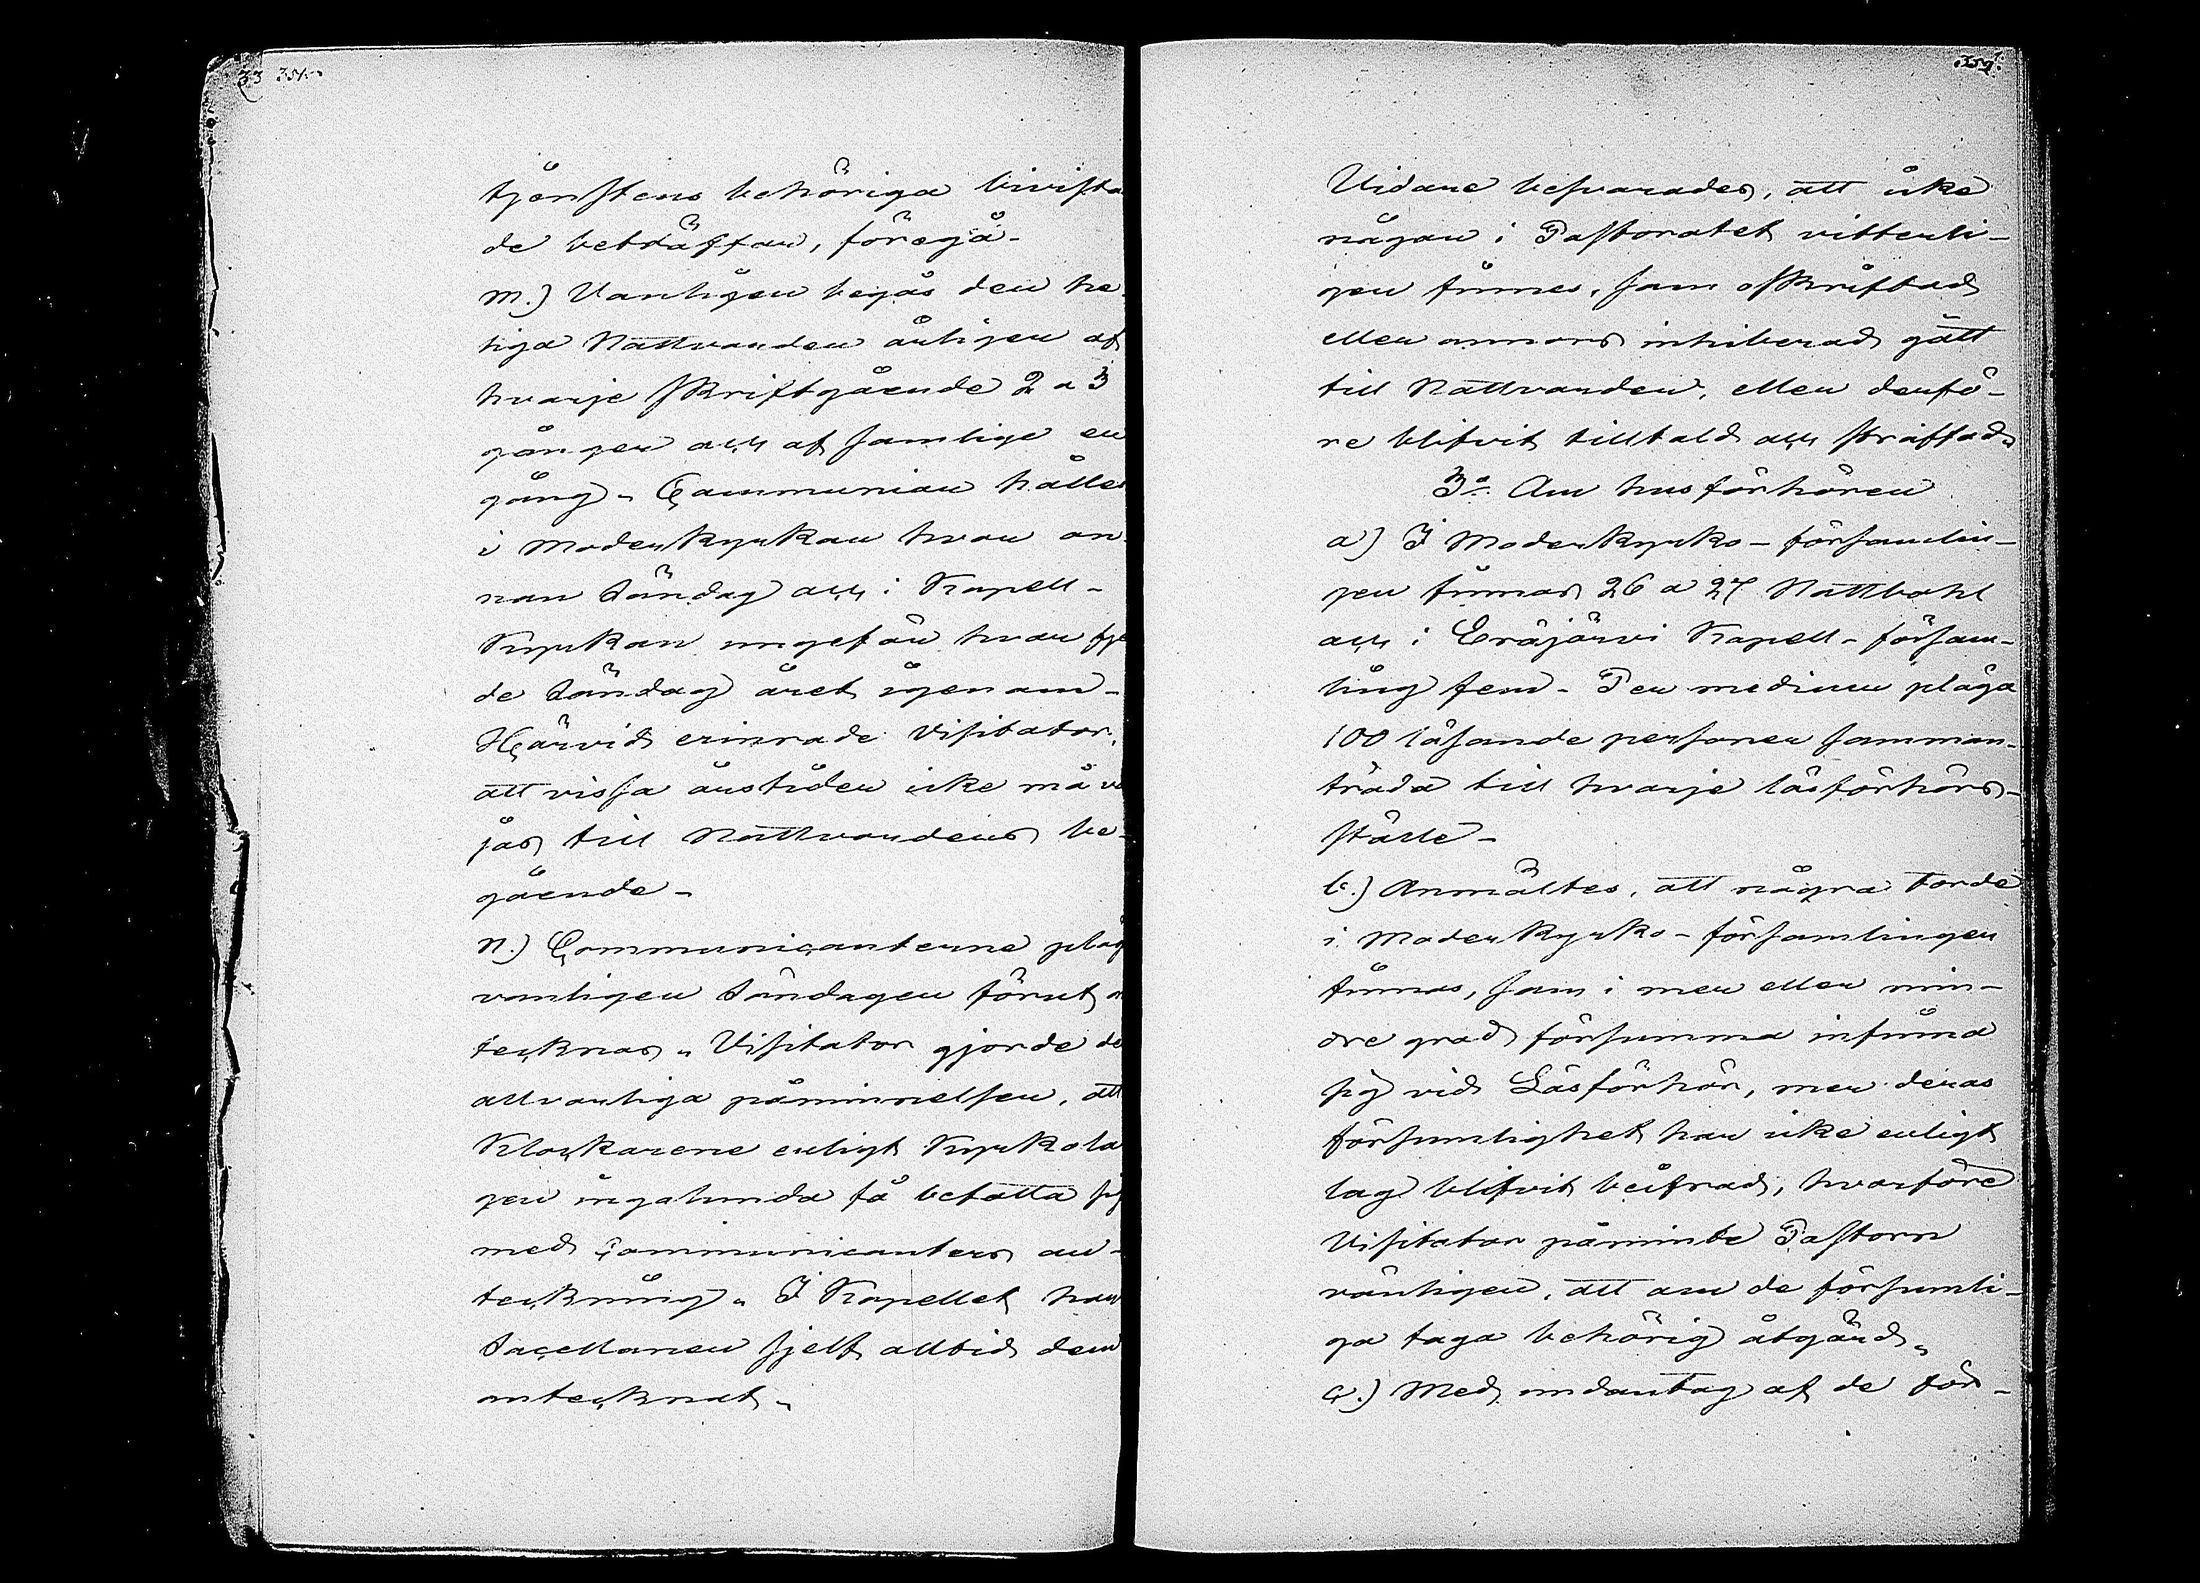 33
tjenstens behöriga bivista
de beträffar, föregå-
m.) Vanligen begås den he-
liga Nattvarden årligen af
hvarje skriftgående 2 a 3
gånger och af samtlige en
gång - Communion hålles
i Moderkyrkan hvar an-
nan Söndag och i Kapell-
Kyrkan ungefär hvar fje
de Söndag året igenom -
Härvid erinrade Visitator,
att vissa årstider icke må vä
jas till Nattvardens be-
gående -
n.) Communicanterne plåg
vanligen Söndagen förut an
tecknas. Visitator gjorde de
allvarliga påminnelsen, att
Klockarene enligt Kyrkola
gen ingalunda få befatta sig
med Communicanters an-
teckning. I Kapellet har
Sacellanen sjelf alltid dem
antecknat.
359.
Vidare besvarades, att icke
någon i Pastoratet vitterli-
gen finnes, som oskriftad
eller annars inhiberad gått
till Nattvarden, eller derfö-
re blifvit tilltald och straffad.
3o. Om husförhören
a) I Moderkyrko-församlin-
gen finnas 26 a 27 Mattbohl
och i Eräjärvi Kapell-försam-
ling fem - Per medium pläga
100 läsande personer samman-
träda till hvarje läsförhörs-
ställe -
b.) Anmältes, att några torde
i Moderkyrko-församlingen
finnas, som i mer eller min-
dre grad försumma infinna
sig vid Läsförhör, men deras
försumlighet har icke enligt
lag blifvit beifrad, hvarföre
Visitator påminte Pastorn
vänligen, att om de försumli-
ga taga behörig åtgärd.
c.) Med undantag af de för-